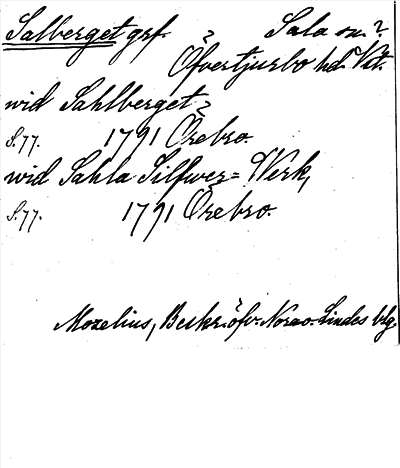 Salberget grf. ? Sala sn. ?
Öfvertjurbo hd. Vst.
wid Sahlberget
S. 77. 1791 Örebro.
wid Sahla Silfwer=Werk,
S. 77. 1791 Örebro.
Mozelius, Beskr. öfv. Nora o. Lindes blg.